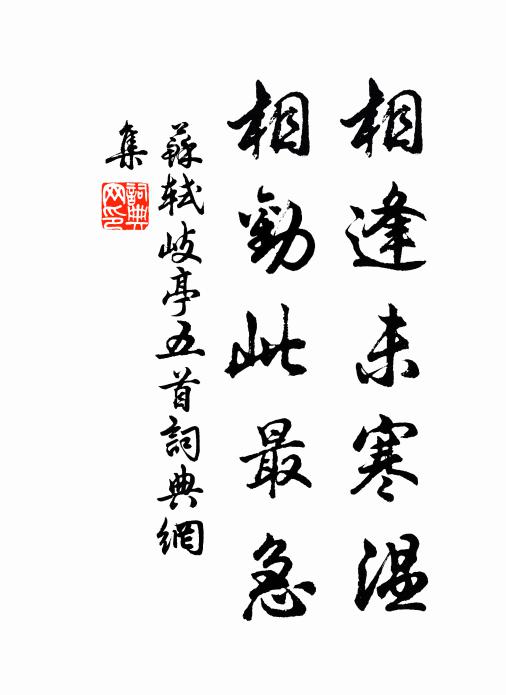 相逢未寒溫
相勸此最急
蘇軾歧亭五首詞典網
集
詞典
网印